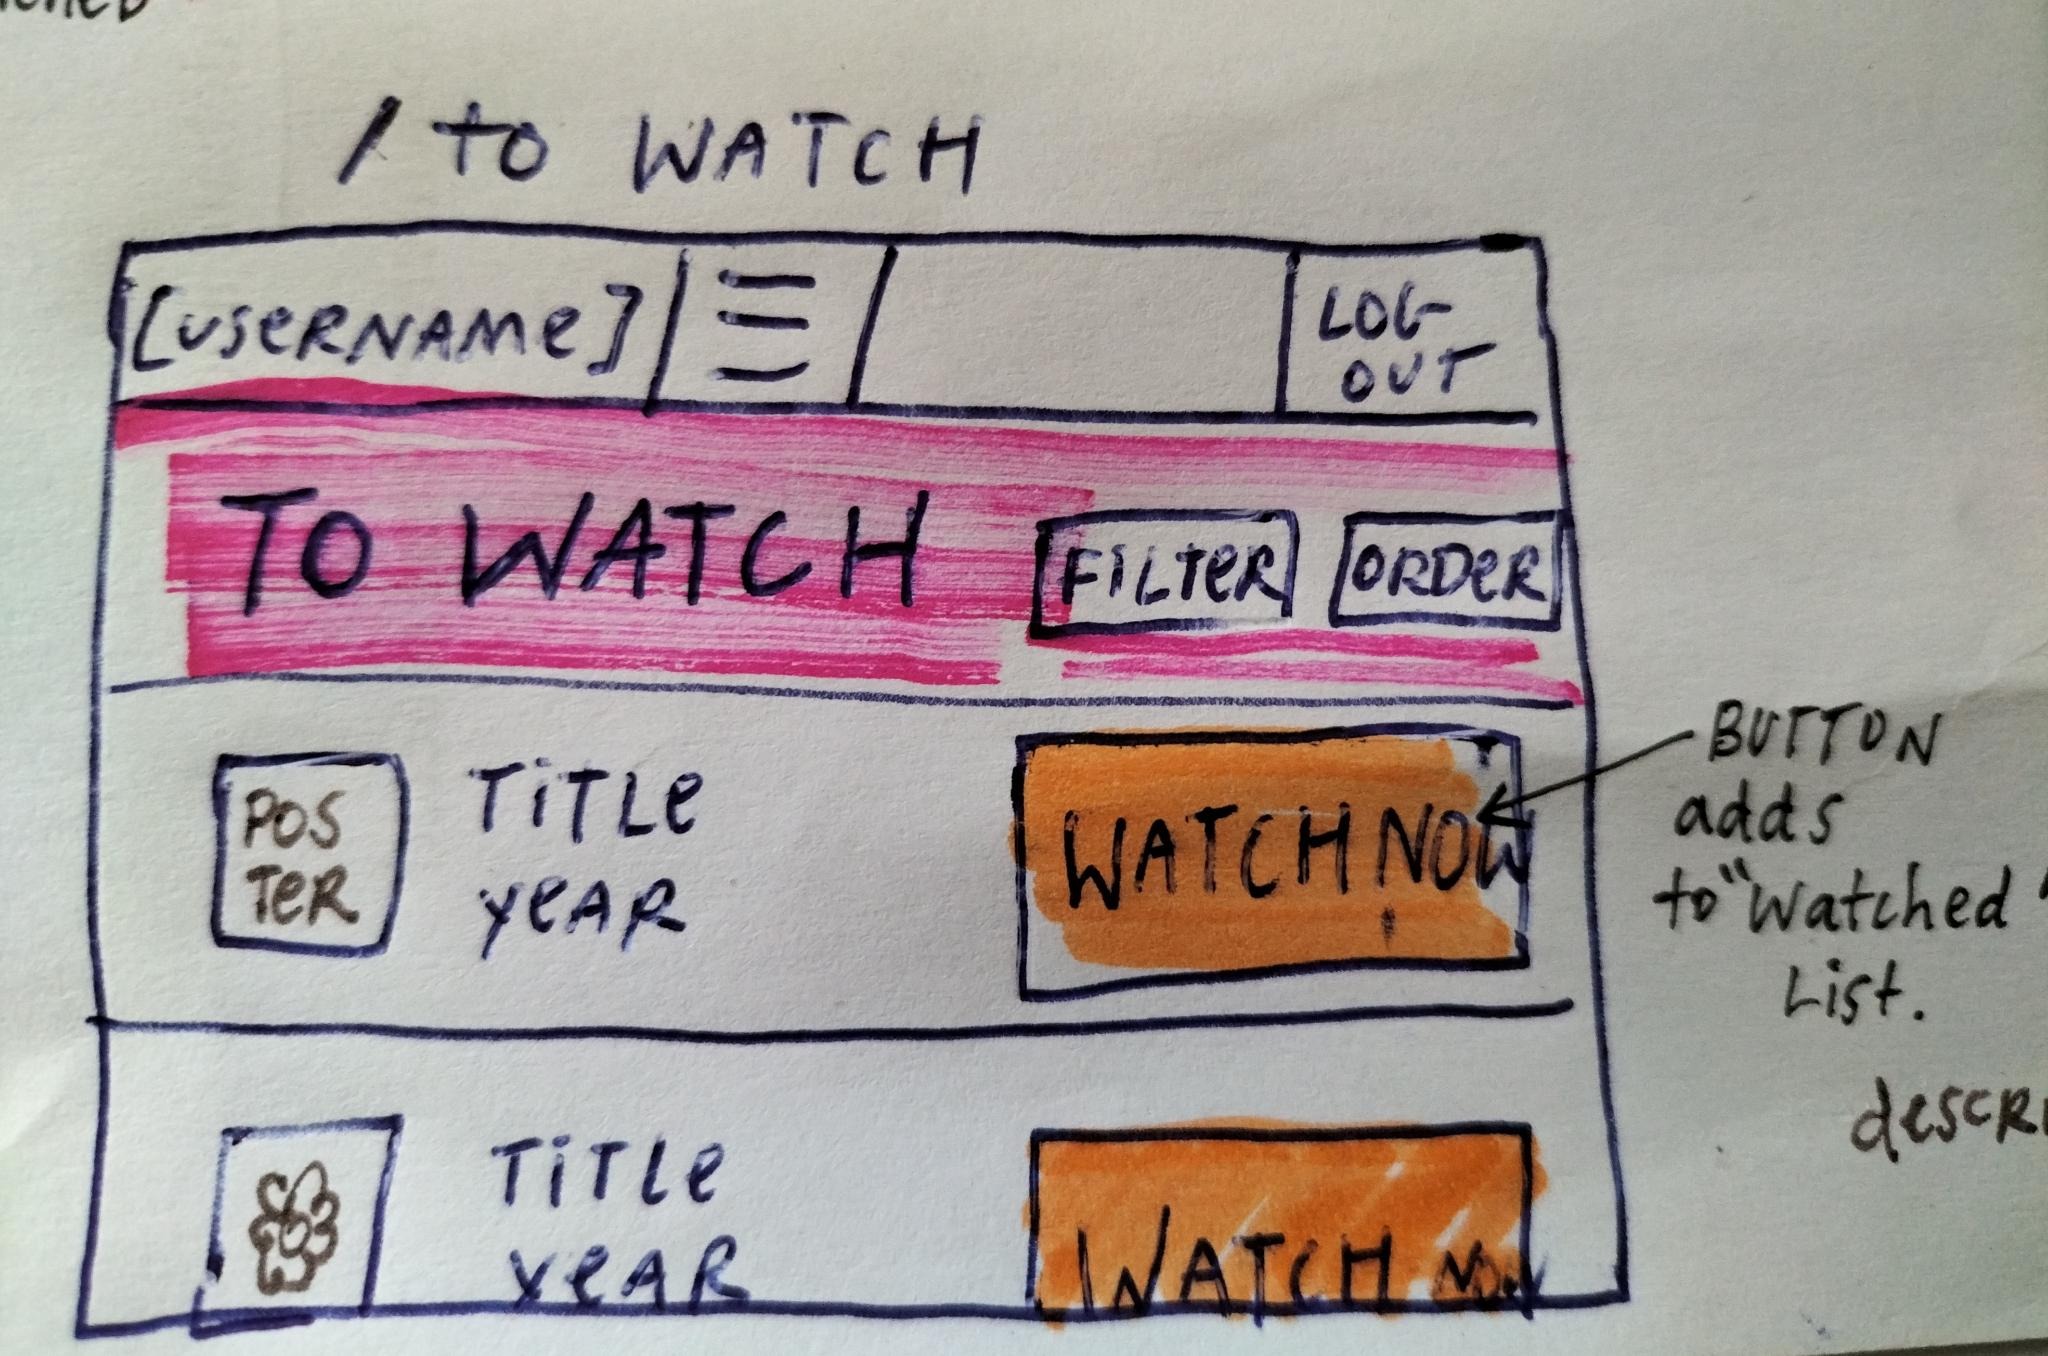 / TO WATCH
[USERNAME]
LOG
OUT
TO WATCH
FILTER
ORDER
POS
TER
TITLE
YEAR
WATCH NOW
BUTTON
adds
to "Watched"
List.
descri
TITLE
YEAR
WATCH NOW